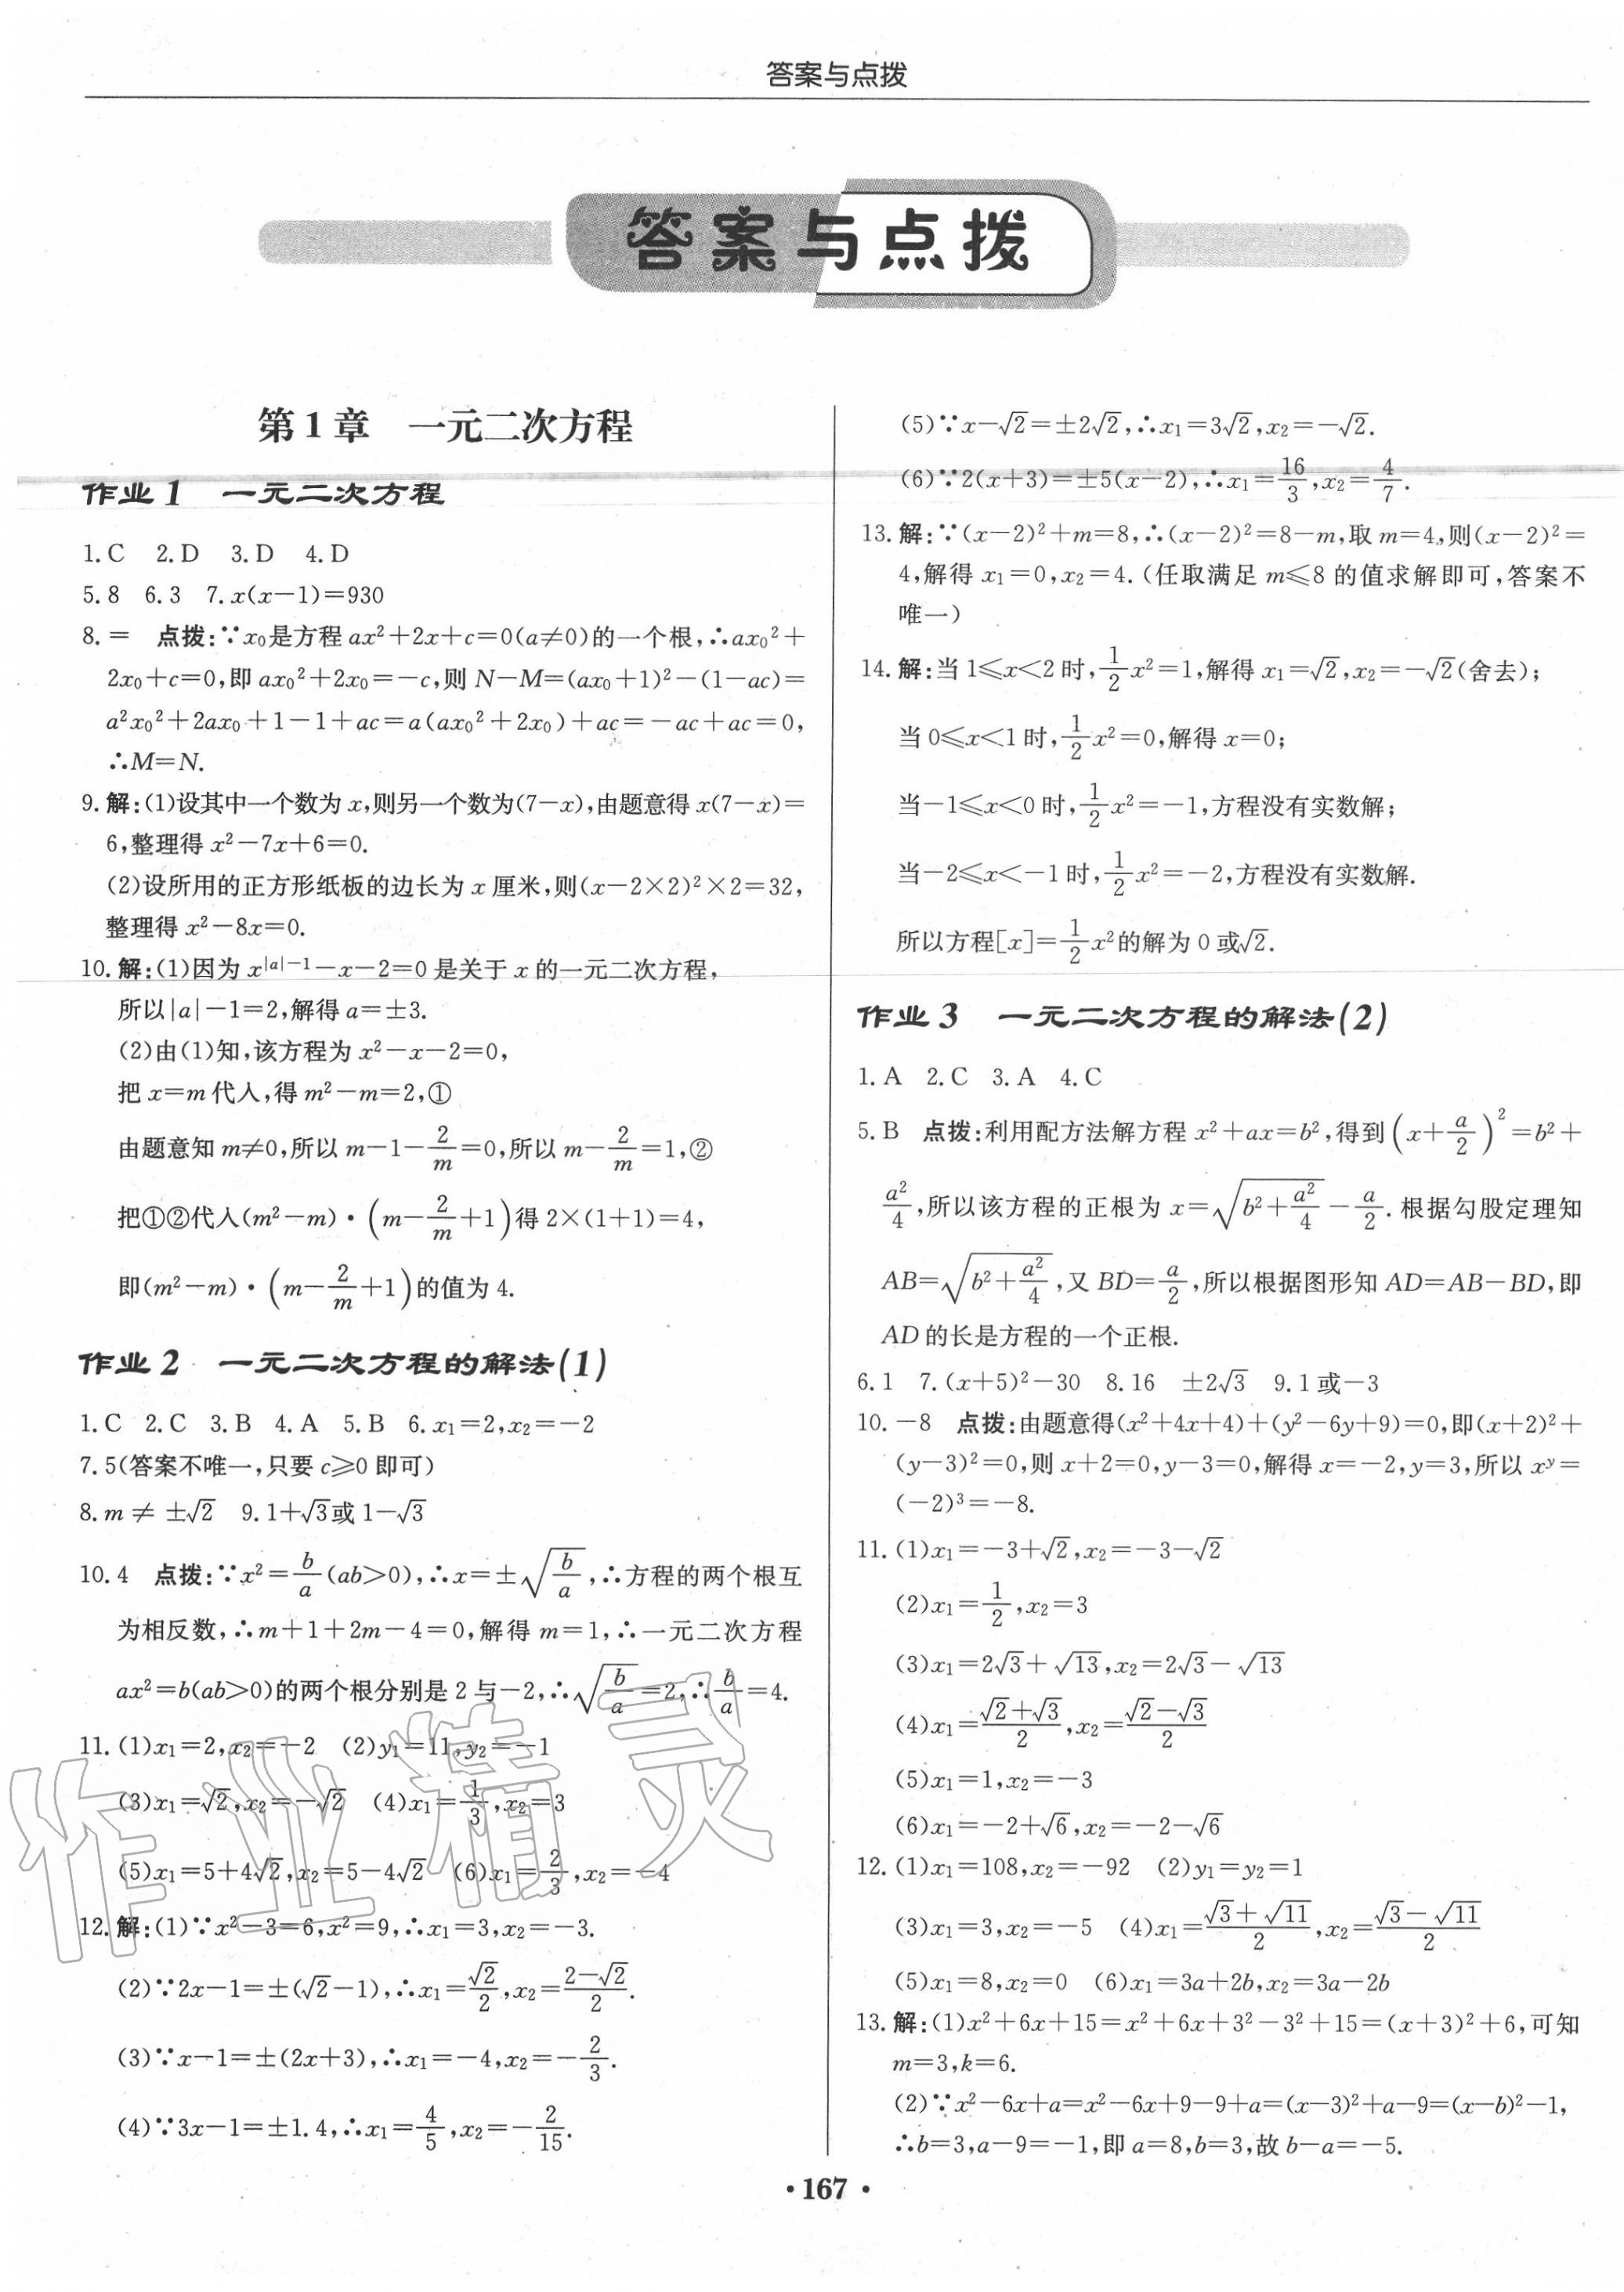 答案与点拨
答案与点拨
第1章 一元二次方程
作业1 一元二次方程
1.C 2.D 3.D 4.D
5.8 6.3 7.x(x-1)=930
8.= 点拨:∵x₀是方程ax²+2x+c=0(a≠0)的一个根,∴ax₀²+
2x₀+c=0,即ax₀²+2x₀=-c,则N-M=(ax₀+1)²-(1-ac)=
a²x₀²+2ax₀+1-1+ac=a(ax₀²+2x₀)+ac=-ac+ac=0,
∴M=N.
9.解:(1)设其中一个数为x,则另一个数为(7-x),由题意得x(7-x)=
6,整理得x²-7x+6=0.
(2)设所用的正方形纸板的边长为x厘米,则(x-2×2)²×2=32,
整理得x²-8x=0.
10.解:(1)因为x^{|a|-1}-x-2=0是关于x的一元二次方程,
所以|a|-1=2,解得a=±3.
(2)由(1)知,该方程为x²-x-2=0,
把x=m代入,得m²-m=2,①
由题意知m≠0,所以m-1-2/m=0,所以m-2/m=1,②
把①②代入(m²-m)·(m-2/m+1)得2×(1+1)=4,
即(m²-m)·(m-2/m+1)的值为4.
作业2 一元二次方程的解法(1)
1.C 2.C 3.B 4.A 5.B 6.x₁=2,x₂=-2
7.5(答案不唯一,只要c≥0即可)
8.m≠±√2 9.1+√3或1-√3
10.4 点拨:∵x²=b/a(ab>0),∴x=±√(b/a),∴方程的两个根互
为相反数,∴m+1+2m-4=0,解得m=1,∴一元二次方程
ax²=b(ab>0)的两个根分别是2与-2,∴√(b/a)=2,∴b/a=4.
11.(1)x₁=2,x₂=-2 (2)y₁=11,y₂=-1
(3)x₁=√2,x₂=-√2 (4)x₁=1/3,x₂=3
(5)x₁=5+4√2,x₂=5-4√2 (6)x₁=2/3,x₂=-4
12.解:(1)∵x²-3=6,x²=9,∴x₁=3,x₂=-3.
(2)∵2x-1=±(√2-1),∴x₁=√2/2,x₂=(2-√2)/2.
(3)∵x-1=±(2x+3),∴x₁=-4,x₂=-2/3.
(4)∵3x-1=±1.4,∴x₁=4/5,x₂=-2/15.
(5)∵x-√2=±2√2,∴x₁=3√2,x₂=-√2.
(6)∵2(x+3)=±5(x-2),∴x₁=16/3,x₂=4/7.
13.解:∵(x-2)²+m=8,∴(x-2)²=8-m,取m=4,则(x-2)²=
4,解得x₁=0,x₂=4.(任取满足m≤8的值求解即可,答案不
唯一)
14.解:当1≤x<2时,1/2x²=1,解得x₁=√2,x₂=-√2(舍去);
当0≤x<1时,1/2x²=0,解得x=0;
当-1≤x<0时,1/2x²=-1,方程没有实数解;
当-2≤x<-1时,1/2x²=-2,方程没有实数解.
所以方程[x]=1/2x²的解为0或√2.
作业3 一元二次方程的解法(2)
1.A 2.C 3.A 4.C
5.B 点拨:利用配方法解方程x²+ax=b²,得到(x+a/2)²=b²+
a²/4,所以该方程的正根为x=√(b²+a²/4)-a/2.根据勾股定理知
AB=√(b²+a²/4),又BD=a/2,所以根据图形知AD=AB-BD,即
AD的长是方程的一个正根.
6.1 7.(x+5)²-30 8.16 ±2√3 9.1或-3
10.-8 点拨:由题意得(x²+4x+4)+(y²-6y+9)=0,即(x+2)²+
(y-3)²=0,则x+2=0,y-3=0,解得x=-2,y=3,所以x^y=
(-2)³=-8.
11.(1)x₁=-3+√2,x₂=-3-√2
(2)x₁=1/2,x₂=3
(3)x₁=2√3+√13,x₂=2√3-√13
(4)x₁=(√2+√3)/2,x₂=(√2-√3)/2
(5)x₁=1,x₂=-3
(6)x₁=-2+√6,x₂=-2-√6
12.(1)x₁=108,x₂=-92 (2)y₁=y₂=1
(3)x₁=3,x₂=-5 (4)x₁=(√3+√11)/2,x₂=(√3-√11)/2
(5)x₁=8,x₂=0 (6)x₁=3a+2b,x₂=3a-2b
13.解:(1)x²+6x+15=x²+6x+3²-3²+15=(x+3)²+6,可知
m=3,k=6.
(2)∵x²-6x+a=x²-6x+9-9+a=(x-3)²+a-9=(x-b)²-1,
∴b=3,a-9=-1,即a=8,b=3,故b-a=-5.
·167·
作业精灵